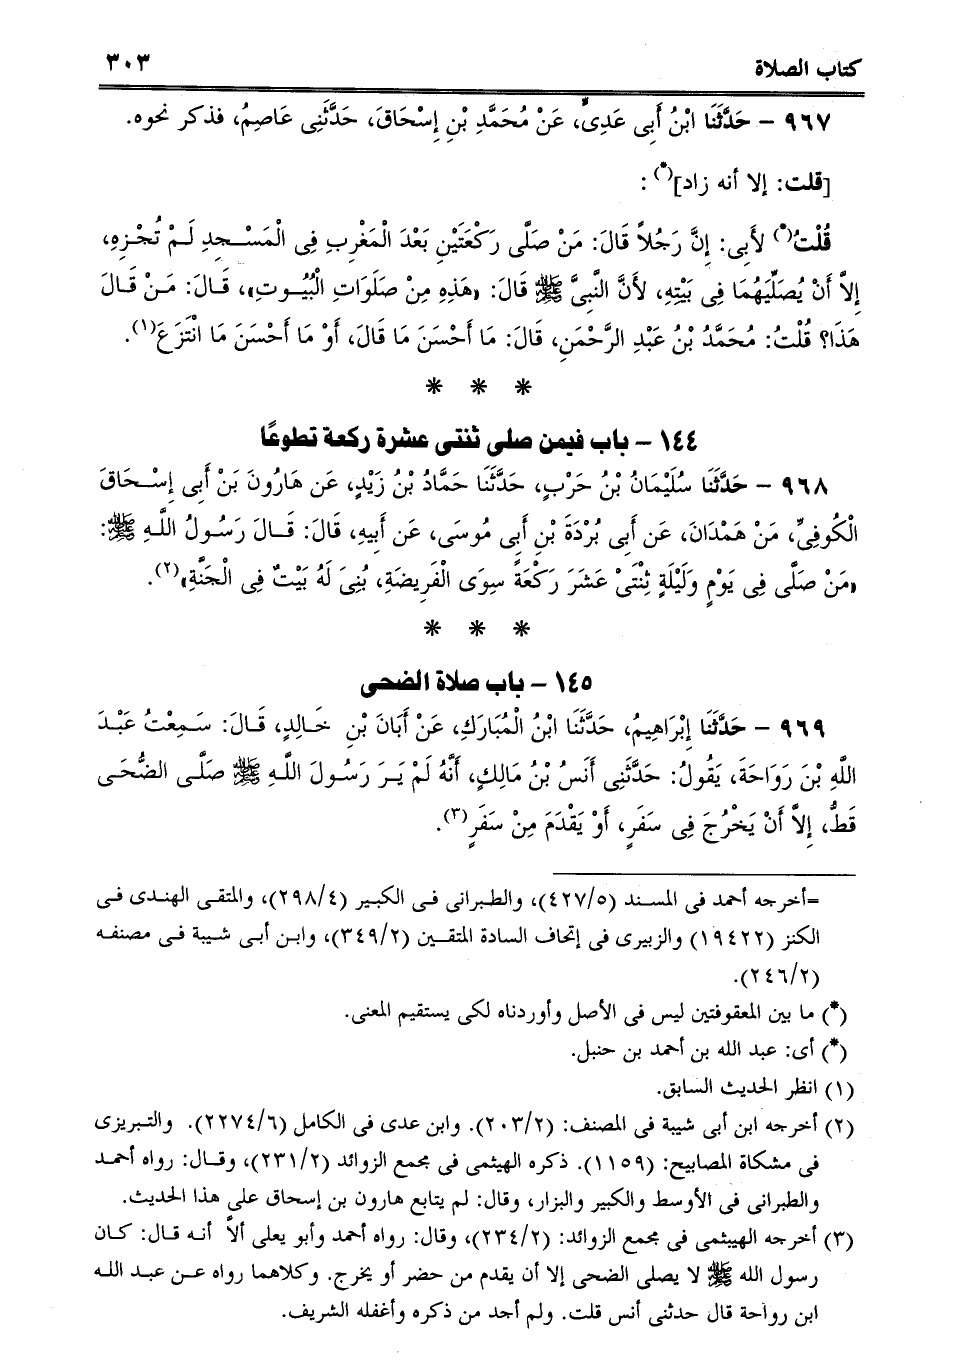 كتاب الصلاة ٣٠٣
٩٦٧ – حَدَّثَنَا ابْنُ أَبِى عَدِىٍّ، عَنْ مُحَمَّدِ بْنِ إِسْحَاقَ، حَدَّثَنِى عَاصِمُ، فذكر نحوه.
[قلت: إلا أنه زاد](*) :
قُلْتُ(*) لأَبِى: إِنَّ رَجُلاً قَالَ: مَنْ صَلَّى رَكْعَتَيْنِ بَعْدَ الْمَغْرِبِ فِى الْمَسْجِدِ لَمْ تُجْزِهِ،
إِلاَّ أَنْ يُصَلِّيَهُمَا فِى بَيْتِهِ، لأَنَّ النَّبِىَّ ﷺ قَالَ: «هَذِهِ مِنْ صَلَوَاتِ الْبُيُوتِ»، قَالَ: مَنْ قَالَ
هَذَا؟ قُلْتُ: مُحَمَّدُ بْنُ عَبْدِ الرَّحْمَنِ، قَالَ: مَا أَحْسَنَ مَا قَالَ، أَوْ مَا أَحْسَنَ مَا انْتَزَعَ(١).
* * *
١٤٤ – باب فيمن صلى ثنتى عشرة ركعة تطوعًا
٩٦٨ – حَدَّثَنَا سُلَيْمَانُ بْنُ حَرْبٍ، حَدَّثَنَا حَمَّادُ بْنُ زَيْدٍ، عَن هَارُونَ بْنِ أَبِى إِسْحَاقَ
الْكُوفِىِّ، مَنْ هَمْدَانَ، عَن أَبِى بُرْدَةَ بْنِ أَبِى مُوسَى، عَن أَبِيهِ، قَالَ: قَالَ رَسُولُ اللَّهِ ﷺ:
«مَنْ صَلَّى فِى يَوْمٍ وَلَيْلَةٍ ثِنْتَىْ عَشَرَ رَكْعَةً سِوَى الْفَرِيضَةِ، بُنِىَ لَهُ بَيْتٌ فِى الْجَنَّةِ»(٢).
* * *
١٤٥ – باب صلاة الضحى
٩٦٩ – حَدَّثَنَا إِبْرَاهِيمُ، حَدَّثَنَا ابْنُ الْمُبَارَكِ، عَنْ أَبَانَ بْنِ خَالِدٍ، قَالَ: سَمِعْتُ عَبْدَ
اللَّهِ بْنَ رَوَاحَةَ، يَقُولُ: حَدَّثَنِى أَنَسُ بْنُ مَالِكٍ، أَنَّهُ لَمْ يَرَ رَسُولَ اللَّهِ ﷺ صَلَّى الضُّحَى
قَطُّ، إِلاَّ أَنْ يَخْرُجَ فِى سَفَرٍ، أَوْ يَقْدَمَ مِنْ سَفَرٍ(٣).
=أخرجه أحمد فى المسند (٤٢٧/٥)، والطبرانى فى الكبير (٢٩٨/٤)، والمتقى الهندى فى
الكنز (١٩٤٢٢) والزبيرى فى إتحاف السادة المتقين (٣٤٩/٢)، وابن أبى شيبة فى مصنفه
(٢٤٦/٢).
(*) ما بين المعقوفتين ليس فى الأصل وأوردناه لكى يستقيم المعنى.
(*) أى: عبد الله بن أحمد بن حنبل.
(١) انظر الحديث السابق.
(٢) أخرجه ابن أبى شيبة فى المصنف: (٢٠٣/٢). وابن عدى فى الكامل (٢٢٧٤/٦). والتبريزى
فى مشكاة المصابيح: (١١٥٩). ذكره الهيثمى فى مجمع الزوائد (٢٣١/٢)، وقال: رواه أحمد
والطبرانى فى الأوسط والكبير والبزار، وقال: لم يتابع هارون بن إسحاق على هذا الحديث.
(٣) أخرجه الهيثمى فى مجمع الزوائد: (٢٣٤/٢)، وقال: رواه أحمد وأبو يعلى ألاَّ أنه قال: كان
رسول الله ﷺ لا يصلى الضحى إلا أن يقدم من حضر أو يخرج. وكلاهما رواه عن عبد الله
ابن رواحة قال حدثنى أنس قلت. ولم أجد من ذكره وأغفله الشريف.